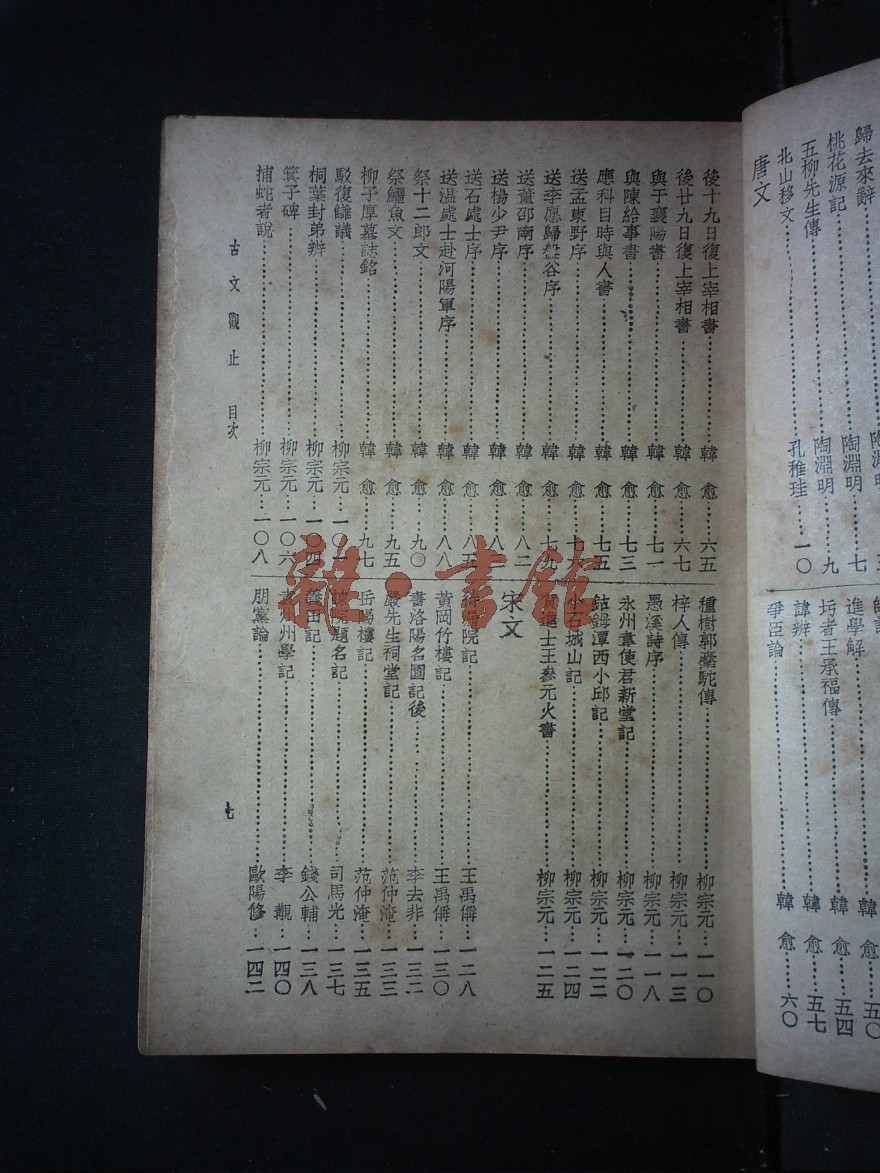 歸去來辭……陶淵明
桃花源記……陶淵明……七
五柳先生傳……陶淵明……九
北山移文……孔稚珪……一〇
唐文
進學解……韓愈……五〇
圬者王承福傳……韓愈……五四
諱辨……韓愈……五七
爭臣論……韓愈……六〇
後十九日復上宰相書……韓愈……六五
後廿九日復上宰相書……韓愈……六七
與于襄陽書……韓愈……七一
與陳給事書……韓愈……七三
應科目時與人書……韓愈……七五
送孟東野序……韓愈……七
送李愿歸盤谷序……韓愈……七九
送董邵南序……韓愈……八二
送楊少尹序……韓愈……八
送石處士序……韓愈……八五
送温處士赴河陽軍序……韓愈……八八
祭十二郎文……韓愈……九〇
祭鱷魚文……韓愈……九五
柳子厚墓誌銘……韓愈……九七
駁復讎議……柳宗元…一〇一
桐葉封弟辨……柳宗元…一〇四
箕子碑……柳宗元…一〇六
捕蛇者說……柳宗元…一〇八
種樹郭橐駝傳……柳宗元…一一〇
梓人傳……柳宗元…一一三
愚溪詩序……柳宗元…一一八
永州韋使君新堂記……柳宗元…一二〇
鈷鉧潭西小邱記……柳宗元…一二二
小石城山記……柳宗元…一二四
賀進士王參元火書……柳宗元…一二五
宋文
待漏院記……王禹偁…一二八
黃岡竹樓記……王禹偁…一三〇
書洛陽名園記後……李去非…一三二
嚴先生祠堂記……范仲淹…一三三
岳陽樓記……范仲淹…一三五
諫院題名記……司馬光…一三七
義田記……錢公輔…一三八
袁州州學記……李覯…一四〇
朋黨論……歐陽修…一四二
古文觀止 目次
七
雜·書館